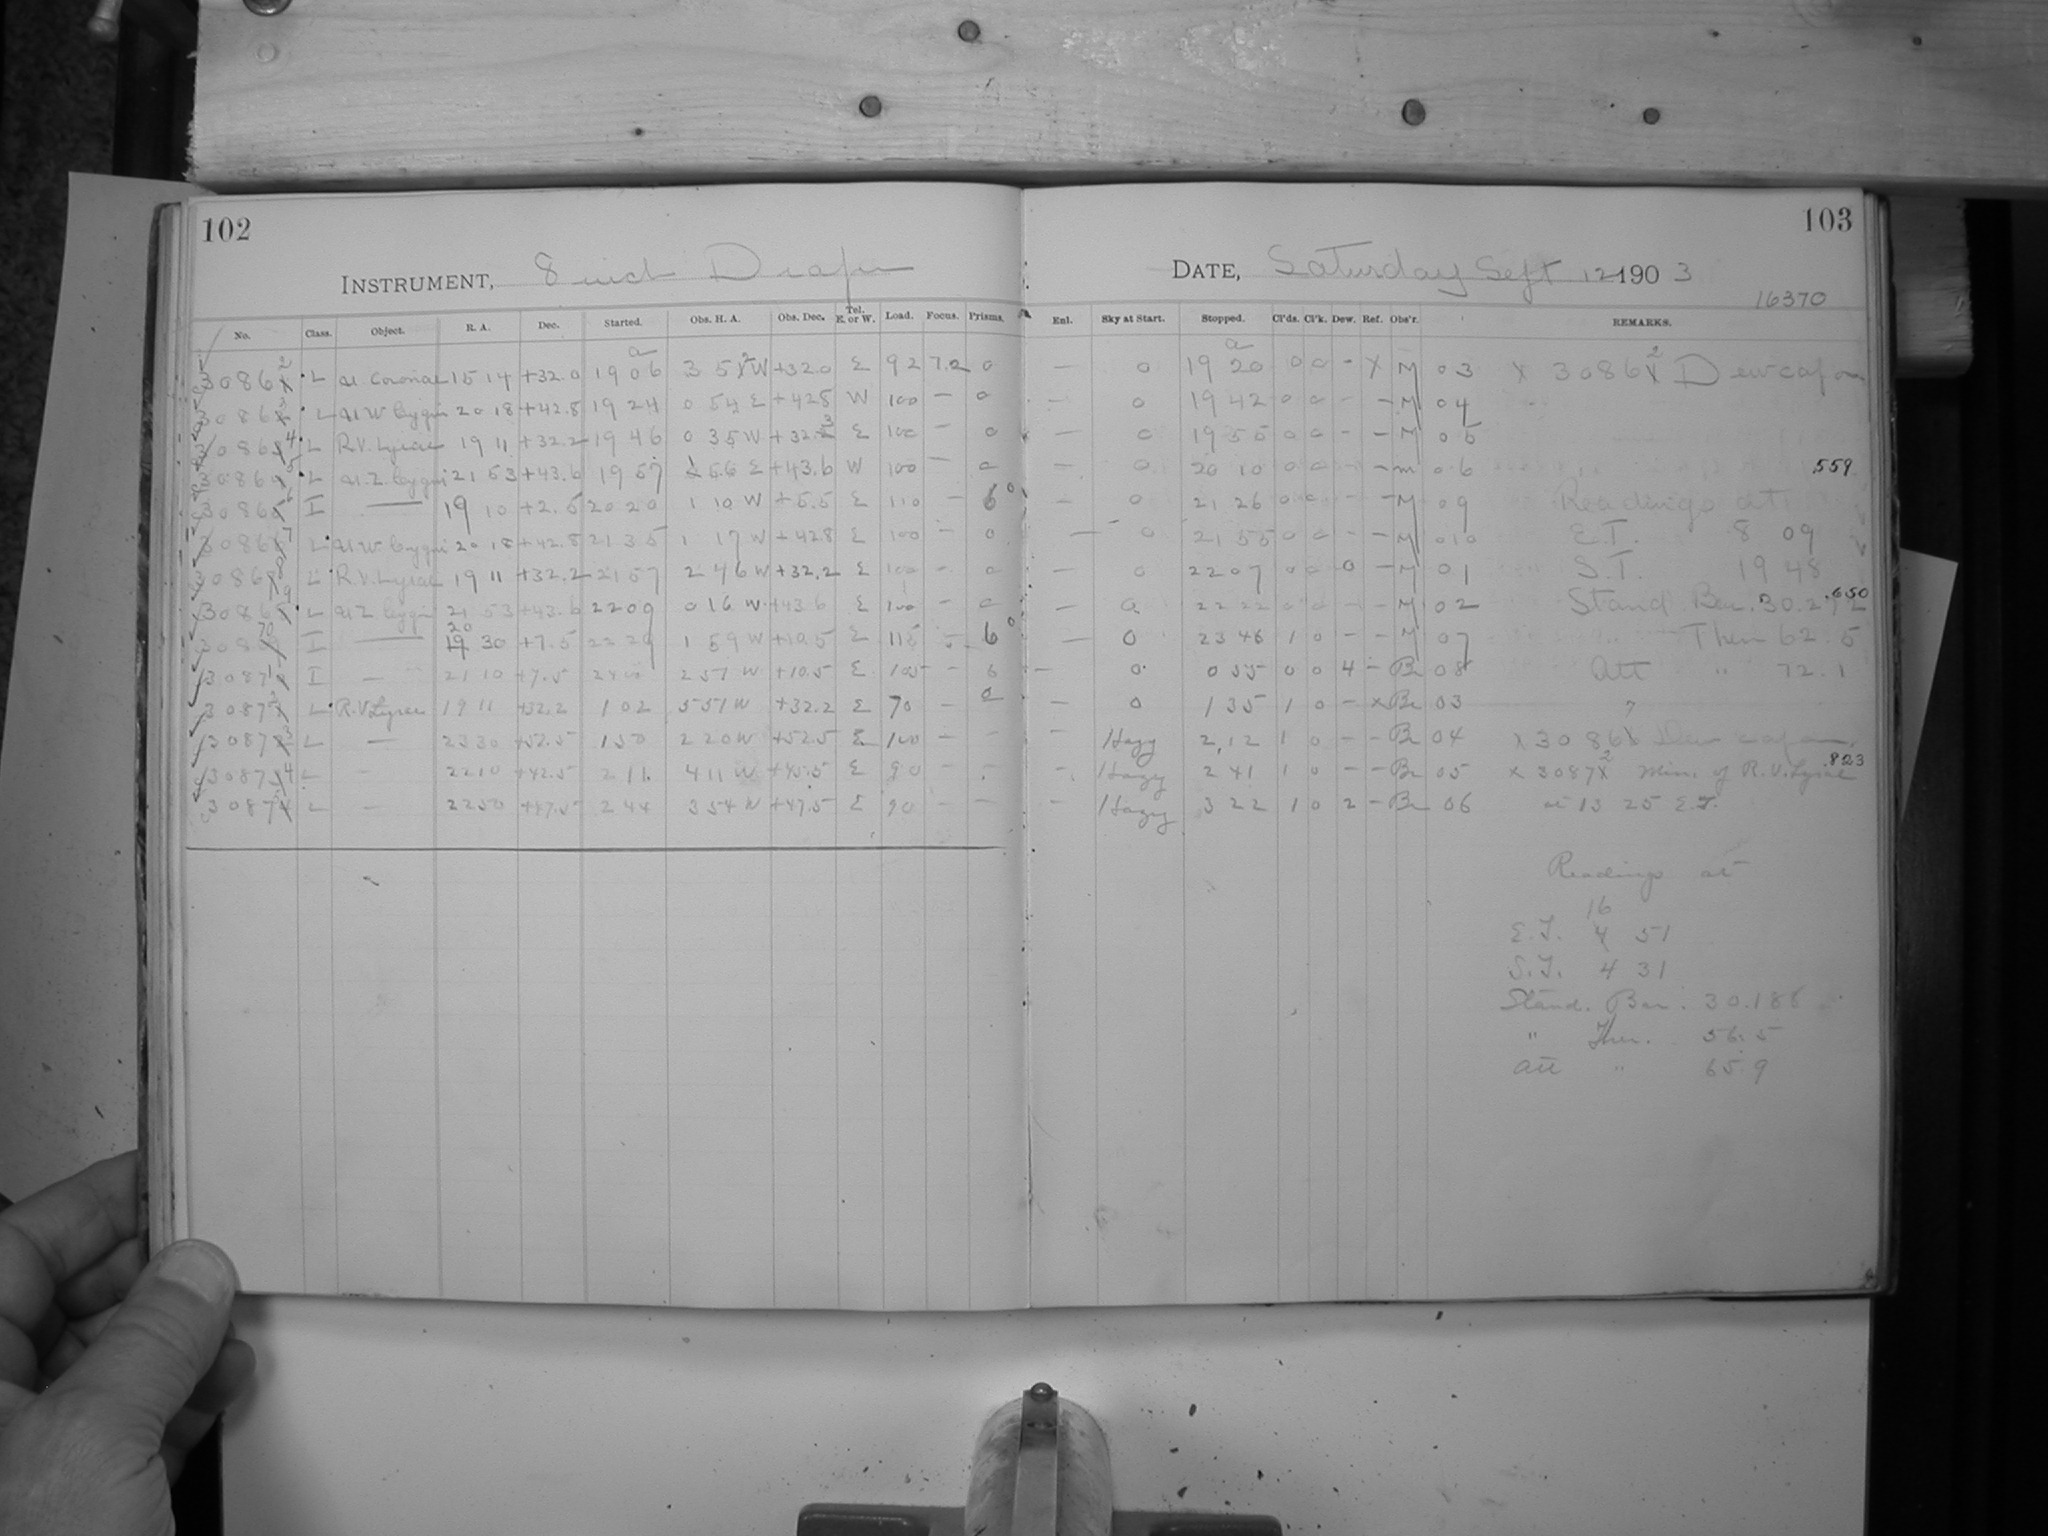 102
103
INSTRUMENT, 8 inch Draper
DATE, Saturday Sept 12 1903
16370
No. Class. Object. R. A. Dec. Started. Obs. H. A. Obs. Dec. Tel. E. or W. Load. Focus. Prisms. Enl. Sky at Start. Stopped. Cl'ds. Cl'k. Dew. Ref. Obs'r. REMARKS.
30862 L U. Coronae 15 14 +32.0 19 06 3 52 W +32.0 E 92 7.2 0 — 0 19 20 0 0 - X M 03 x 30862 Dewcap on
30863 L U W Cygni 20 18 +42.8 19 24 0 54 E +428 W 100 — 0 — 0 19 42 0 0 - - M 04
30864 L R.V. Lyrae 19 11 +32.2 19 46 0 35 W +32.3 E 100 — 0 — 0 19 55 0 0 - - M 05
30865 L U. Z. Cygni 21 53 +43.6 19 57 1 56 E +43.6 W 100 — 0 — 0 20 10 0 0 - - M 06 .559
30866 I — 19 10 +2.5 20 20 1 10 W +5.5 E 110 — 6° — 0 21 26 0 0 - - M 09 Readings at
30867 L U W Cygni 20 18 +42.8 21 35 1 17 W +428 E 100 — 0 — 0 21 55 0 0 - - M 010 E.T. 8 09
30868 L R.V. Lyrae 19 11 +32.2 21 57 2 46 W +32.2 E 100 — 0 — 0 22 07 0 0 0 - M 01 S.T. 19 48
30869 L U Z Cygni 21 53 +43.6 22 09 0 16 W +43.6 E 100 — 0 — 0 22 22 0 0 - - M 02 Stand Bar. 30.272 .650
30870 I — 20 30 +7.5 22 29 1 59 W +10.5 E 115 6° — 0 23 46 1 0 - - M 07 Ther 62.5
30871 I — 21 10 +7.5 2 57 W +10.5 E 105 - 6 — 0 0 55 0 0 4 - Br 08 Att " 72.1
30872 L R.V. Lyrae 19 11 +32.2 1 02 5 51 W +32.2 E 70 - 0 — 0 1 35 1 0 - x Br 03
30873 L — 23 30 +52.5 1 50 2 20 W +52.5 E 100 - - — Hazy 2 12 1 0 - - Br 04 x 3086 Dew cap on
30874 L — 22 10 +42.5 2 11 4 11 W +45.5 E 90 - - - Hazy 2 41 1 0 - - Br 05 x 30872 Min. of R.V. Lyrae .823
3087 L — 22 50 +47.5 2 44 3 54 W +47.5 E 90 - - — Hazy 3 22 1 0 2 - Br 06 at 13 25 E.T.
Readings at
16
E.T. 4 51
S.T. 4 31
Stand. Bar. 30.188
" Ther. 56.5
Att " 65.9